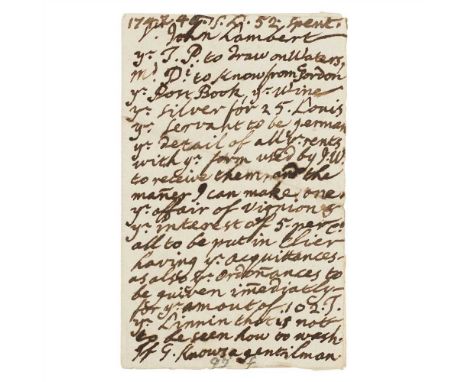 John Lambert
yͤ. J. P. to draw on Waters,
to know from Gordon
yͤ. Port Book yͤ. Wine
yͤ. Silver for 25. Louis
yͤ. Servant to be german
yͤ. detail of all yͤ. rents
with yͤ. form used by J. W.
to receive them and the
mañer I can make one
yͤ. affair of Vignion &
yͤ. interest of 5. per Cͭ.
all to be put in Clier
having yͤ. acquittances.
as also yͤ. ordoñances to
be guiven im̃ediatly
for yͤ. amount of 102. J.
yͤ. Linnin that is not
to be seen how to wash
If G. knows a gentilman